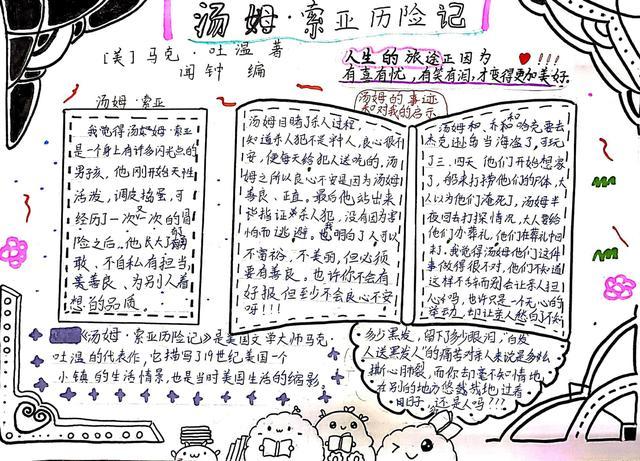 汤姆·索亚历险记
[美]马克·吐温 著
闻钟 编
人生的旅途正因为
有喜有忧,有笑有泪,才变得更加美好.
汤姆·索亚
我觉得汤姆·索亚
是一个身上有许多闪光点的
男孩,他刚开始天性
活泼,调皮捣蛋,可
经历了一次又一次的冒
险之后,他长大了,勇
敢、不自私有担当,
善良、为别人着
想的品质
汤姆的事迹
和对我的启示
汤姆目睹了杀人过程,
知道杀人犯不是
安,便每天给犯人送吃的,汤
姆之所以良心不安是因为汤姆
善良、正直。最后他站出来
杀人犯,没有因为害
怕而逃避。我明白了人可以
不富裕,不美丽,但必须
要有善良。也许你不会有
好报,但至少不会良心不安
呀!!!
汤姆和乔和哈克要去
杰克逊岛当海盗了,可玩
了三、四天他们开始想家
了,船来打捞他们的尸体,大
人以为他们淹死了,汤姆半
夜回去打探情况,大人要给
他们办葬礼,他们在葬礼中回
来了。我觉得汤姆他们这件
事做得很不对,他们不知道
这样不辞而别会让亲人担
心吗,也许只是一个无心的
举动,却让亲人愁白了
多少黑发,留下了多少眼泪,“白发
人送黑发人”的痛苦对亲人来说是多么
撕心肺裂,而你却毫不知情地
在别的地方悠哉哉地过着
日子,还是人吗???
《汤姆·索亚历险记》是美国文学大师马克·
吐温的代表作,它描写了19世纪美国一个
小镇的生活情景,也是当时美国生活的缩影。